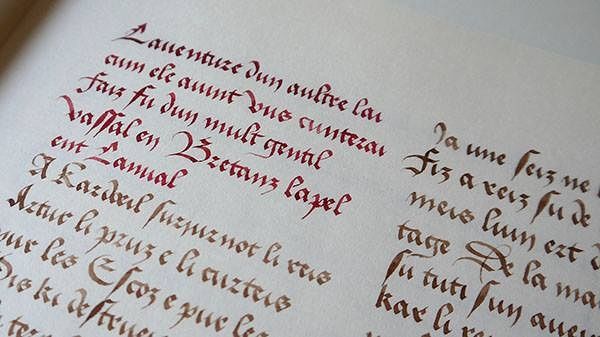 Laventure dun aultre lai
cum ele avint vus cunterai
Faiz fu dun mult gentil
vassal en Bretanz lapel
ent Lanval
A Kardoil surjurnot li reis
Artur li pruz e li curteis
pur les Escoz e pur les
Pis ki destrue
Ja une feiz ne
Fiz a reis fu de
meis luin ert d
tage De la ma
su tuti sun aver
kar li rei